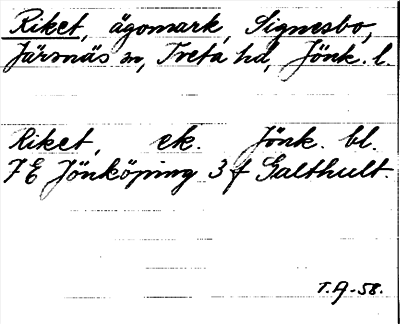 Riket, ägomark, Signesbo,
Järsnäs sn, Tveta hd, Jönk. l.
Riket, ek. Jönk. bl.
7E Jönköping 3 f Galthult.
T.A-58.